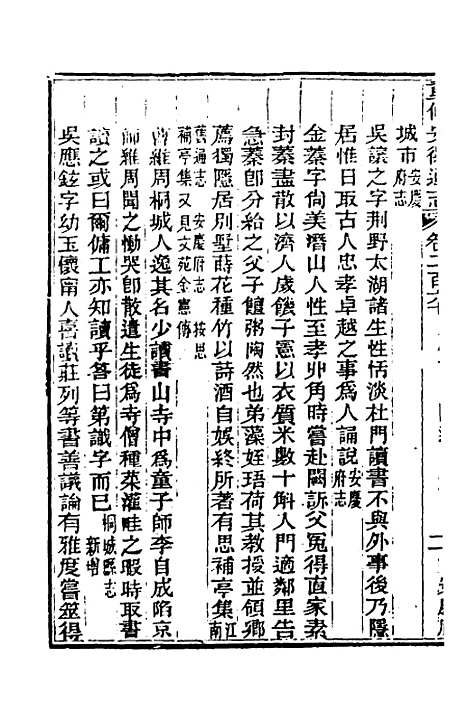 城市安慶府志
吳讓之字荆野太湖諸生性恬淡杜門讀書不與外事後乃隱
居惟日取古人忠孝卓越之事爲人誦說安慶府志
金蓁字尙美潛山人性至孝丱角時嘗赴闕訴父冤得直家素
封蓁盡散以濟人歲饑子憲以衣質米數十斛人門適鄰里告
急蓁卽分給之父子饘粥陶然也弟藻姪珸荷其教授並領鄉
薦獨隱居別墅蒔花種竹以詩酒自娛終所著有思補亭集江南
舊通志 安慶府志 按思補亭集又見文苑金憲傳
曾維周桐城人逸其名少讀書山寺中爲童子師李自成陷京
師維周聞之慟哭卽散遣生徒爲寺僧種菜灌畦之暇時取書
讀之或曰爾傭工亦知讀乎答曰第識字而已桐城縣志 新增
吳應鉉字幼玉懷甯人喜讀莊列等書善議論有雅度嘗筮得